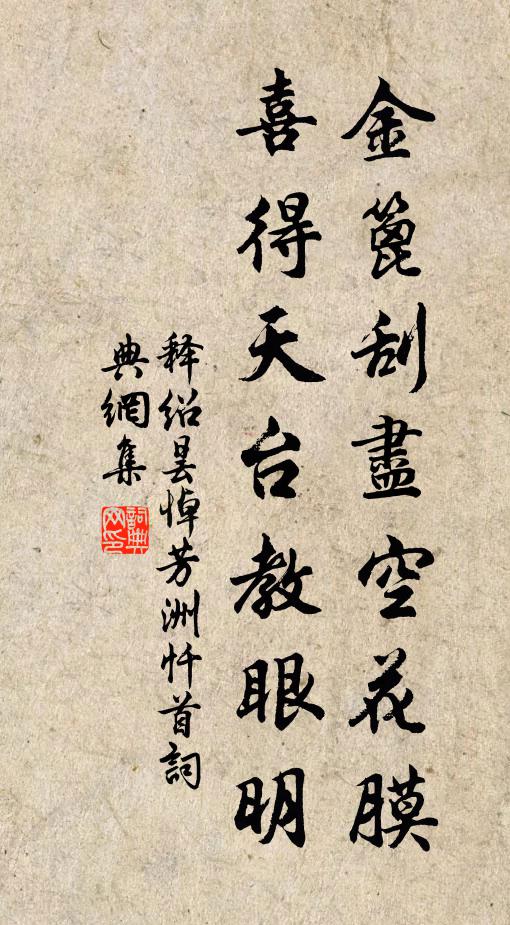 金篦刮盡空花膜
喜得天台教眼明
释绍昙悼芳洲忏首詞
典網集
詞典
网印